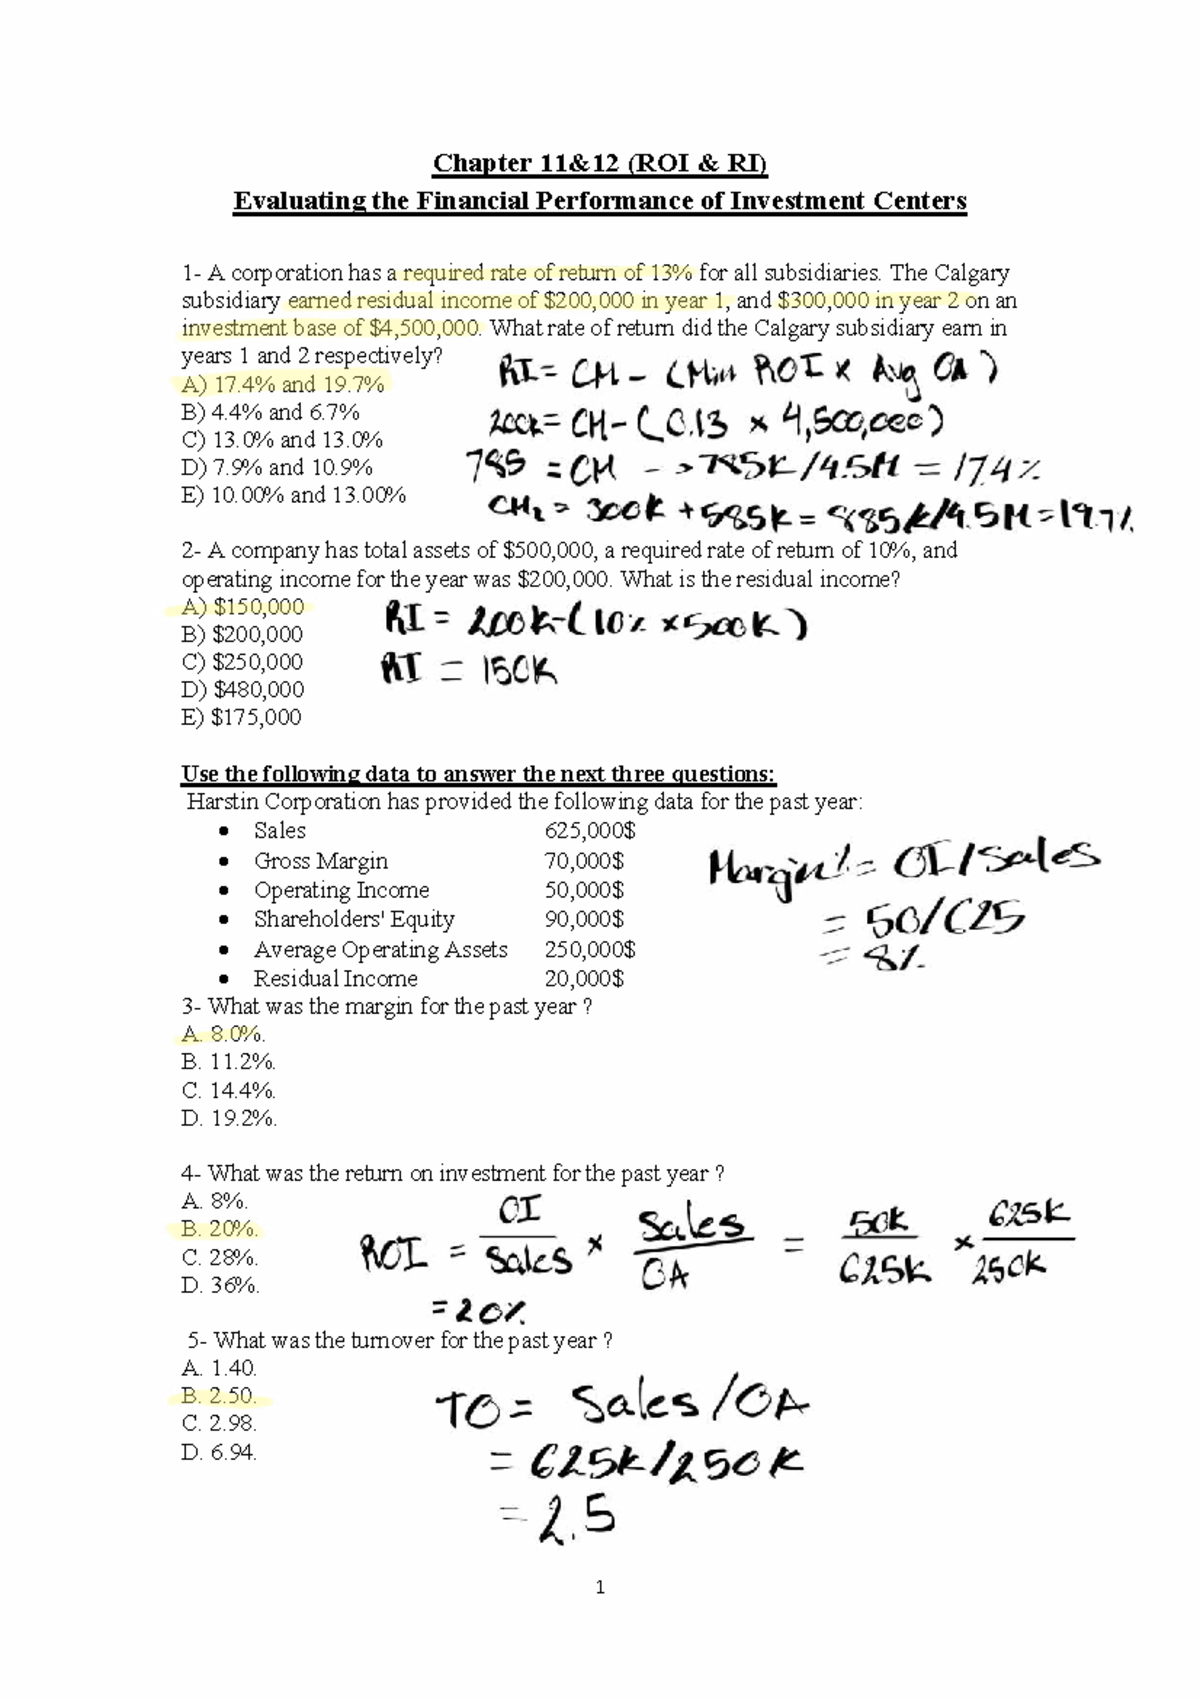 Chapter 11&12 (ROI & RI)
Evaluating the Financial Performance of Investment Centers
1- A corporation has a required rate of return of 13% for all subsidiaries. The Calgary
subsidiary earned residual income of $200,000 in year 1, and $300,000 in year 2 on an
investment base of $4,500,000. What rate of return did the Calgary subsidiary earn in
years 1 and 2 respectively?
RI = CM - (Min ROI x Avg OA)
A) 17.4% and 19.7%
B) 4.4% and 6.7%
200k = CM - (0.13 x 4,500,000)
C) 13.0% and 13.0%
D) 7.9% and 10.9%
785 = CM -> 785K/4.5M = 17.4%
E) 10.00% and 13.00%
CM2 = 300k + 585k = 885k/4.5M = 19.7%
2- A company has total assets of $500,000, a required rate of return of 10%, and
operating income for the year was $200,000. What is the residual income?
A) $150,000
RI = 200k-(10% x 500k)
B) $200,000
C) $250,000
RI = 150K
D) $480,000
E) $175,000
Use the following data to answer the next three questions:
Harstin Corporation has provided the following data for the past year:
• Sales 625,000$
• Gross Margin 70,000$
Margin % = OI/Sales
• Operating Income 50,000$
• Shareholders' Equity 90,000$
= 50/625
• Average Operating Assets 250,000$
= 8%
• Residual Income 20,000$
3- What was the margin for the past year ?
A. 8.0%.
B. 11.2%.
C. 14.4%.
D. 19.2%.
4- What was the return on investment for the past year ?
A. 8%.
B. 20%.
C. 28%.
D. 36%.
ROI = OI/Sales x Sales/OA = 50k/625k x 625k/250k
= 20%
5- What was the turnover for the past year ?
A. 1.40.
B. 2.50.
C. 2.98.
D. 6.94.
TO = Sales/OA
= 625k/250k
= 2.5
1